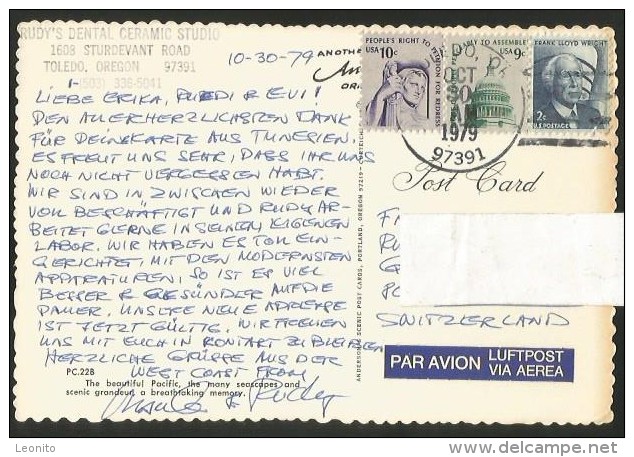 RUDY'S DENTAL CERAMIC STUDIO
1608 STURDEVANT ROAD
TOLEDO, OREGON 97391
1-(503) 336-5041
10-30-79
ANOTHE
ORI
PEOPLE'S RIGHT TO PETITION FOR REDRESS
USA 10c
TO ASSEMBLE
USA 9c
FRANK LLOYD WRIGHT
2¢
U.S. POSTAGE
OCT
1979
97391
LIEBE ERIKA, RUEDI & EVI!
DEN ALLERHERZLICHSTEN DANK
FÜR DEINE KARTE AUS TUNESIEN.
ES FREUT UNS SEHR, DASS IHR UNS
NOCH NICHT VERGESSEN HABT.
WIR SIND INZWISCHEN WIEDER
VOLL BESCHÄFTIGT UND RUDY AR-
BEITET GERNE IN SEINEM EIGENEN
LABOR. WIR HABEN ES TOLL EIN-
GERICHTET, MIT DEN MODERNSTEN
APPARATUREN, SO IST ES VIEL
BESSER & GESÜNDER AUF DIE
DAUER. UNSERE NEUE ADRESSE
IST JETZT GÜLTIG. WIR FREUEN
UNS MIT EUCH IN KONTAKT ZU BLEIBEN
HERZLICHE GRÜSSE AUS DER
WEST COAST FROM
& Rudy
PC.22B
The beautiful Pacific, the many seascapes and
scenic grandeur a breathtaking memory.
ANDERSON SCENIC POST CARDS, PORTLAND, OREGON 97219
Post Card
SWITZERLAND
PAR AVION LUFTPOST
VIA AEREA
Leonito
www.delcampe.net